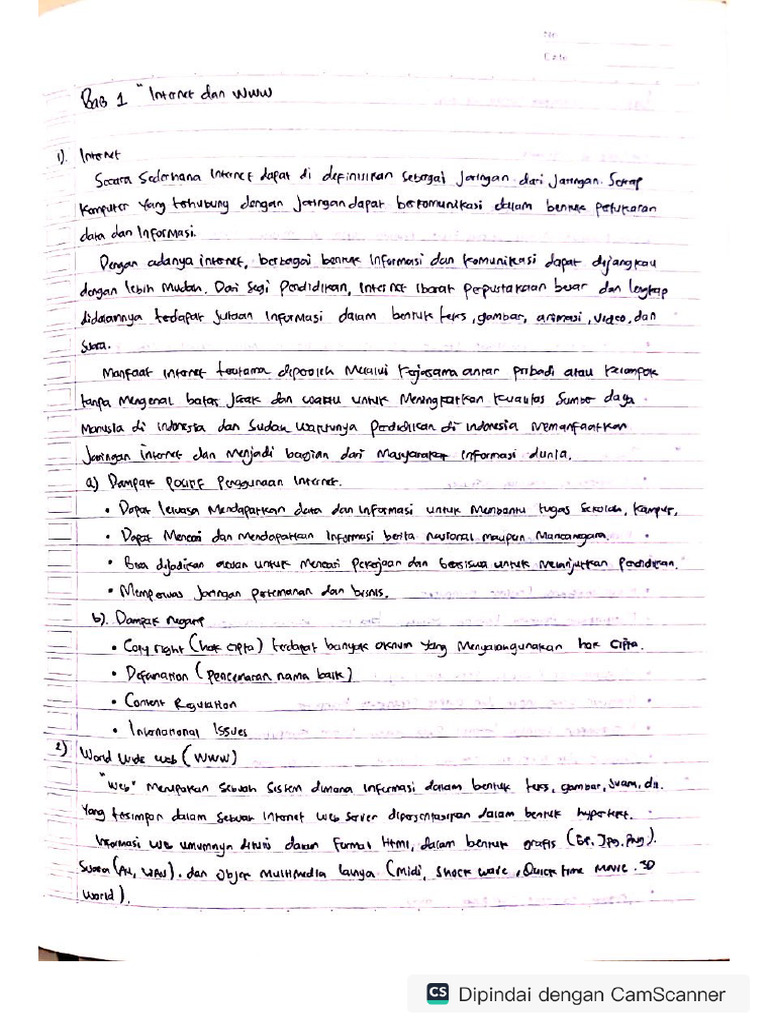 No
Date
Bab 1 "Internet dan WWW
1). Internet
Secara Sederhana Internet dapat di definisikan sebagai Jaringan dari Jaringan. Setiap
Komputer Yang terhubung dengan Jaringan dapat berkomunikasi dalam bentuk pertukaran
data dan Informasi.
Dengan adanya internet, berbagai bentuk Informasi dan Komunikasi dapat dijangkau
dengan lebih Mudah. Dari Segi Pendidikan, Internet Ibarat Perpustakaan besar dan lengkap
didalamnya terdapat Jutaan Informasi dalam bentuk teks, gambar, animasi, video, dan
Suara.
Manfaat Internet terutama diperoleh Melalui Kerjasama antar pribadi atau Kelompok
tanpa Mengenal batas Jarak dan waktu untuk Meningkatkan Kualitas Sumber daya
Manusia di Indonesia dan Sudah Waktunya Pendidikan di Indonesia Memanfaatkan
Jaringan internet dan Menjadi bagian dari Masyarakat Informasi dunia.
a) Dampak Positif Penggunaan Internet.
• Dapat leluasa Mendapatkan data dan Informasi untuk Membantu tugas Sekolah, Kampus,
• Dapat Mencari dan Mendapatkan Informasi berita Nasional maupun Mancanegara.
• Bisa dijadikan untuk Mencari Pekerjaan dan beasiswa untuk Melanjutkan Pendidikan.
• Memperluas Jaringan Pertemanan dan bisnis.
b). Dampak Negatif
• Copy right (hak cipta) terdapat banyak oknum yang Menyalahgunakan hak cipta.
• Defamation (Pencemaran nama baik)
• Content Regulation
• International Issues
2) World Wide Web (WWW)
"Web" Merupakan Sebuah Sistem dimana Informasi dalam bentuk teks, gambar, Suara, dll.
Yang tersimpan dalam Sebuah Internet Web Server dipresentasikan dalam bentuk hypertext.
Informasi Web umumnya ditulis dalam Format HTML, dalam bentuk grafis (GIF, JPG, PNG).
Suara (AU, WAV). dan Objek Multimedia lainya (Midi, Shock wave, Quick time Movie. 3D
World).
CS Dipindai dengan CamScanner